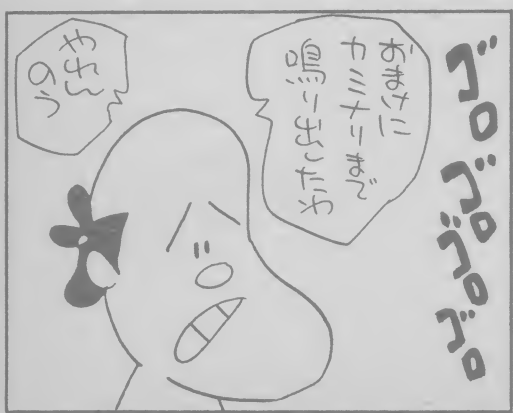 ゴロゴロゴロゴロ
おまけに
カミナリまで
鳴り出したわ
やれん
のう